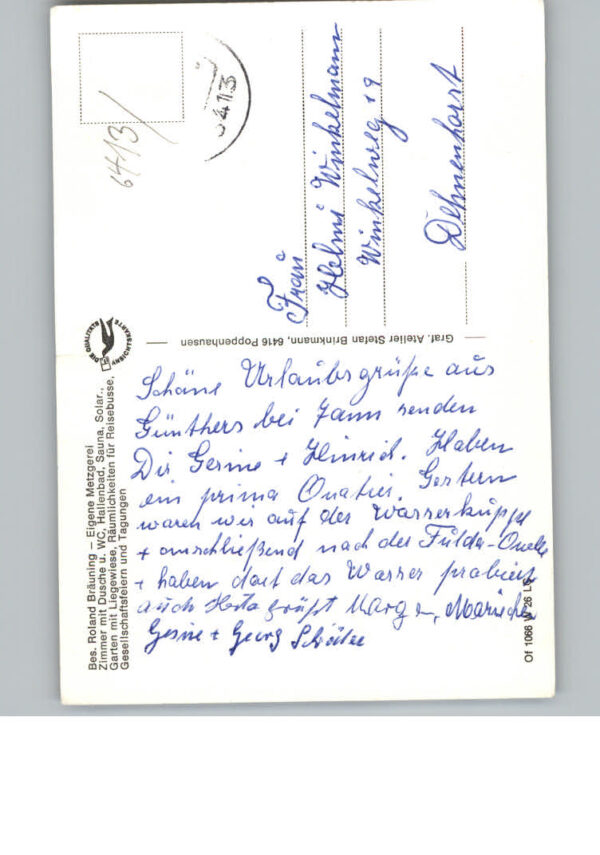 Bes. Roland Bräuning – Eigene Metzgerei
Zimmer mit Dusche u. WC, Hallenbad, Sauna, Solar.,
Garten mit Liegewiese, Räumlichkeiten für Reisebusse,
Gesellschaftsfeiern und Tagungen
DIE QUALITÄTS ANSICHTSKARTE
Graf. Atelier Stefan Brinkmann, 6416 Poppenhausen
Of 1066 W 26 L
6413
6413
Frau
Helmi Winkelmann
Winkelweg 19
Delmenhorst
Schöne Urlaubsgrüße aus
Günthers bei Tann senden
Dir Gesine + Hinrich. Haben
ein prima Quatier. Gestern
waren wir auf der Wasserkuppe
+ anschließend nach der Fulda-Quelle
+ haben dort das Wasser probiert
auch grüßt
Gesine + Georg